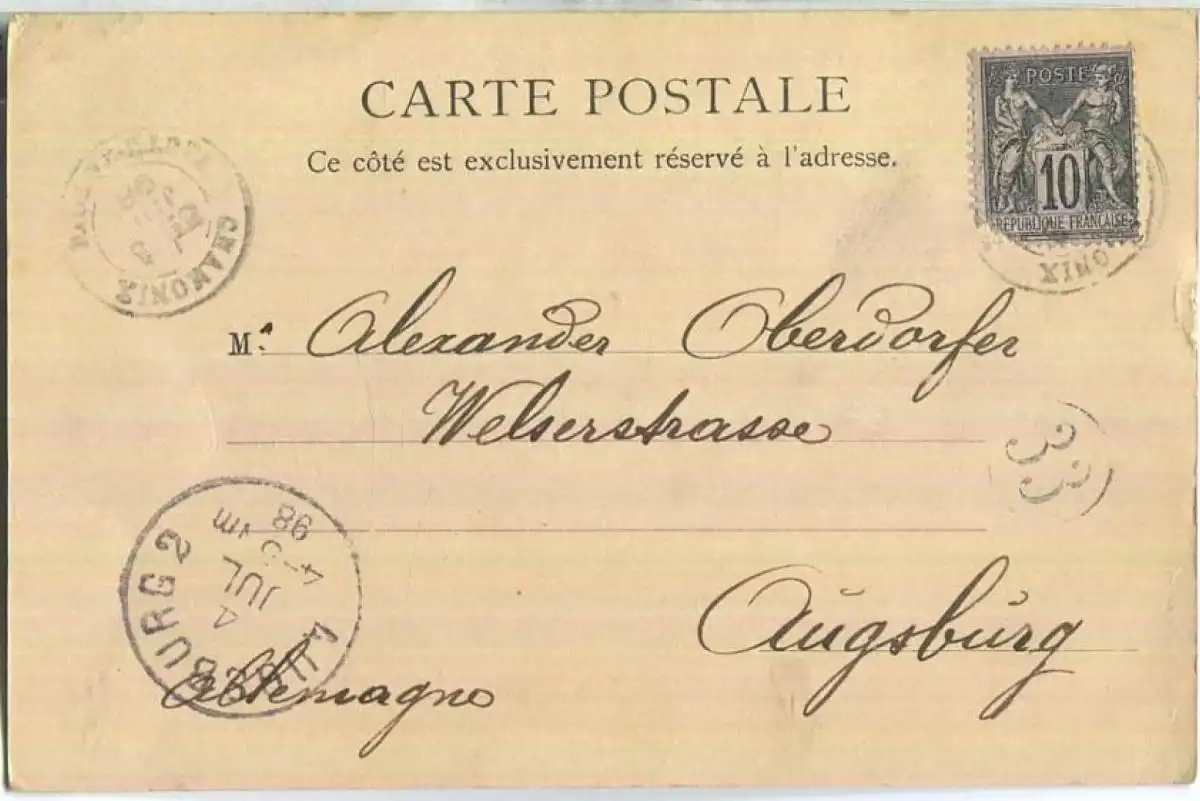 CARTE POSTALE
Ce côté est exclusivement réservé à l'adresse.
POSTE
10
RÉPUBLIQUE FRANÇAISE
CHAMONIX
98
ONIX
M. Alexander Oberdorfer
Welserstrasse
Augsburg
Allemagne
AUGSBURG 2
4
JUL
98